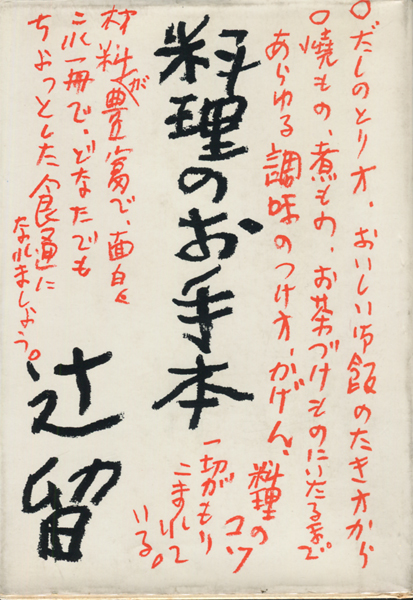 ○だしのとり方、おいしい御飯のたき方から
○燒もの、煮もの、お茶づけものにいたるまで。
あらゆる調味のつけ方、かげん、
料理の
コツ
一切がもり
こまれて
いる。
料理のお手本
材料が豊富で、面白く
これ一冊で、どなたでも
ちょっとした食通に
なれましょう。
辻留